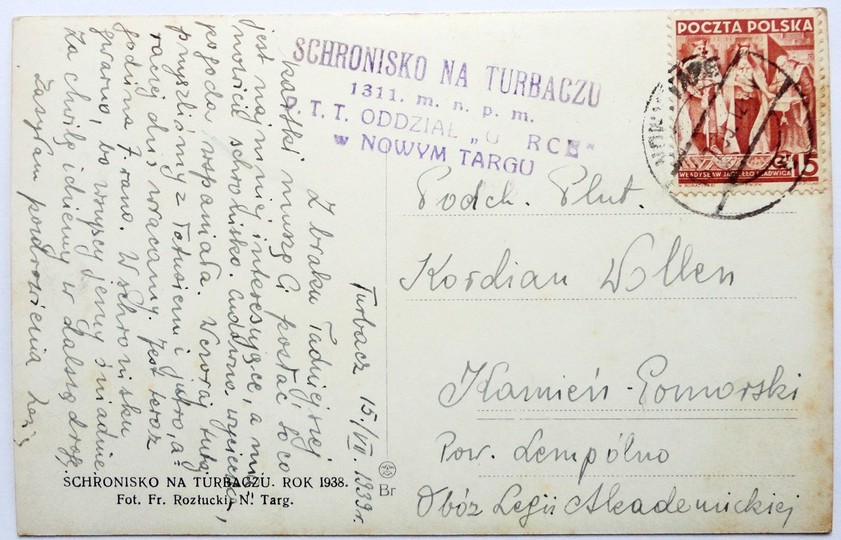 SCHRONISKO NA TURBACZU
1311. m. n. p. m.
T. T. ODDZIAŁ „G RCE"
w NOWYM TARGU
POCZTA POLSKA
GR 15
WŁADYSŁAW JAGIEŁŁO I JADWIGA
Turbacz 15/VII 1939r.
Z braku ładniejszej
kartki muszę Ci posłać to co
jest najmniej interesujące, a mia-
nowicie schronisko. Cudowna wycieczka,
pogoda wspaniała. Wczoraj tutaj
przyszliśmy z Tatusiem i jutro, a
raczej dziś wracamy. Jest teraz
godzina 7 rano. W schronisku
gwarno, bo wszyscy jemy śniadanie.
Za chwilę idziemy w dalszą drogę.
Zasyłam pozdrowienia
Podch. Plut.
Kordian Wollen
Kamień-Pomorski
Pow. Sempólno
Obóz Legii Akademickiej
SCHRONISKO NA TURBACZU. ROK 1938.
Fot. Fr. Rozłucki, N. Targ.
Br